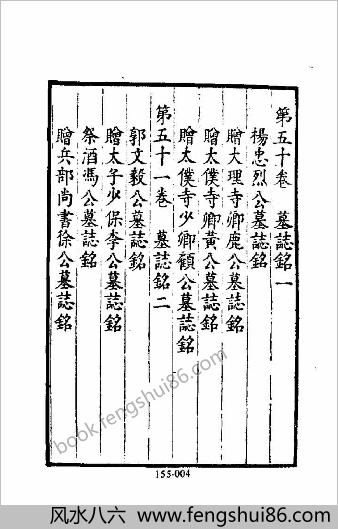 第五十卷　墓誌銘一
楊忠烈公墓誌銘
贈大理寺卿鹿公墓誌銘
贈太僕寺卿黃公墓誌銘
贈太僕寺少卿顧公墓誌銘
第五十一卷　墓誌銘二
郭文毅公墓誌銘
贈太子少保李公墓誌銘
祭酒馮公墓誌銘
贈兵部尚書徐公墓誌銘
book.fengshui86.com
155-004
风水八六 www.fengshui86.com